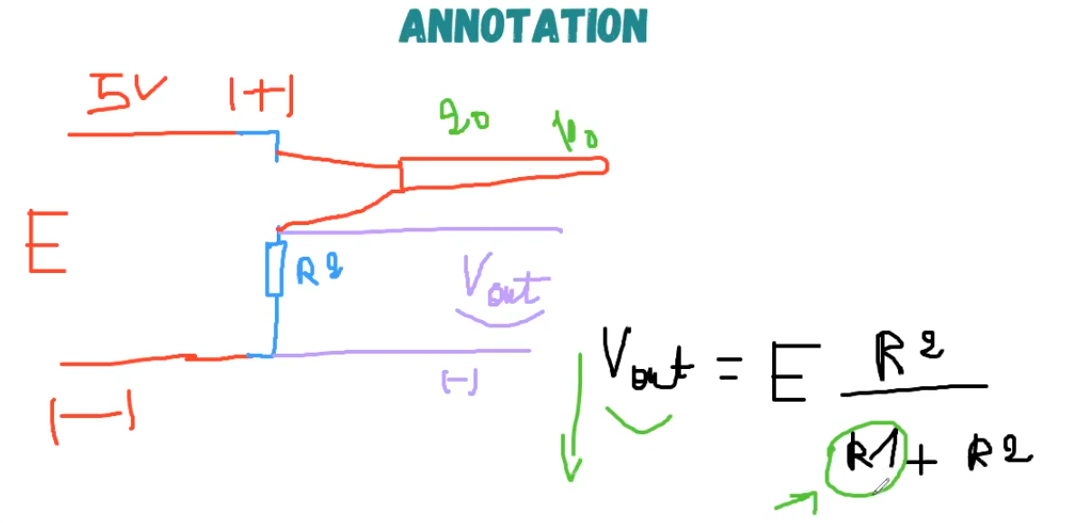 ANNOTATION
5V (+)
E
R2
Vout
(-)
(-)
Vout = E R2
R1 + R2